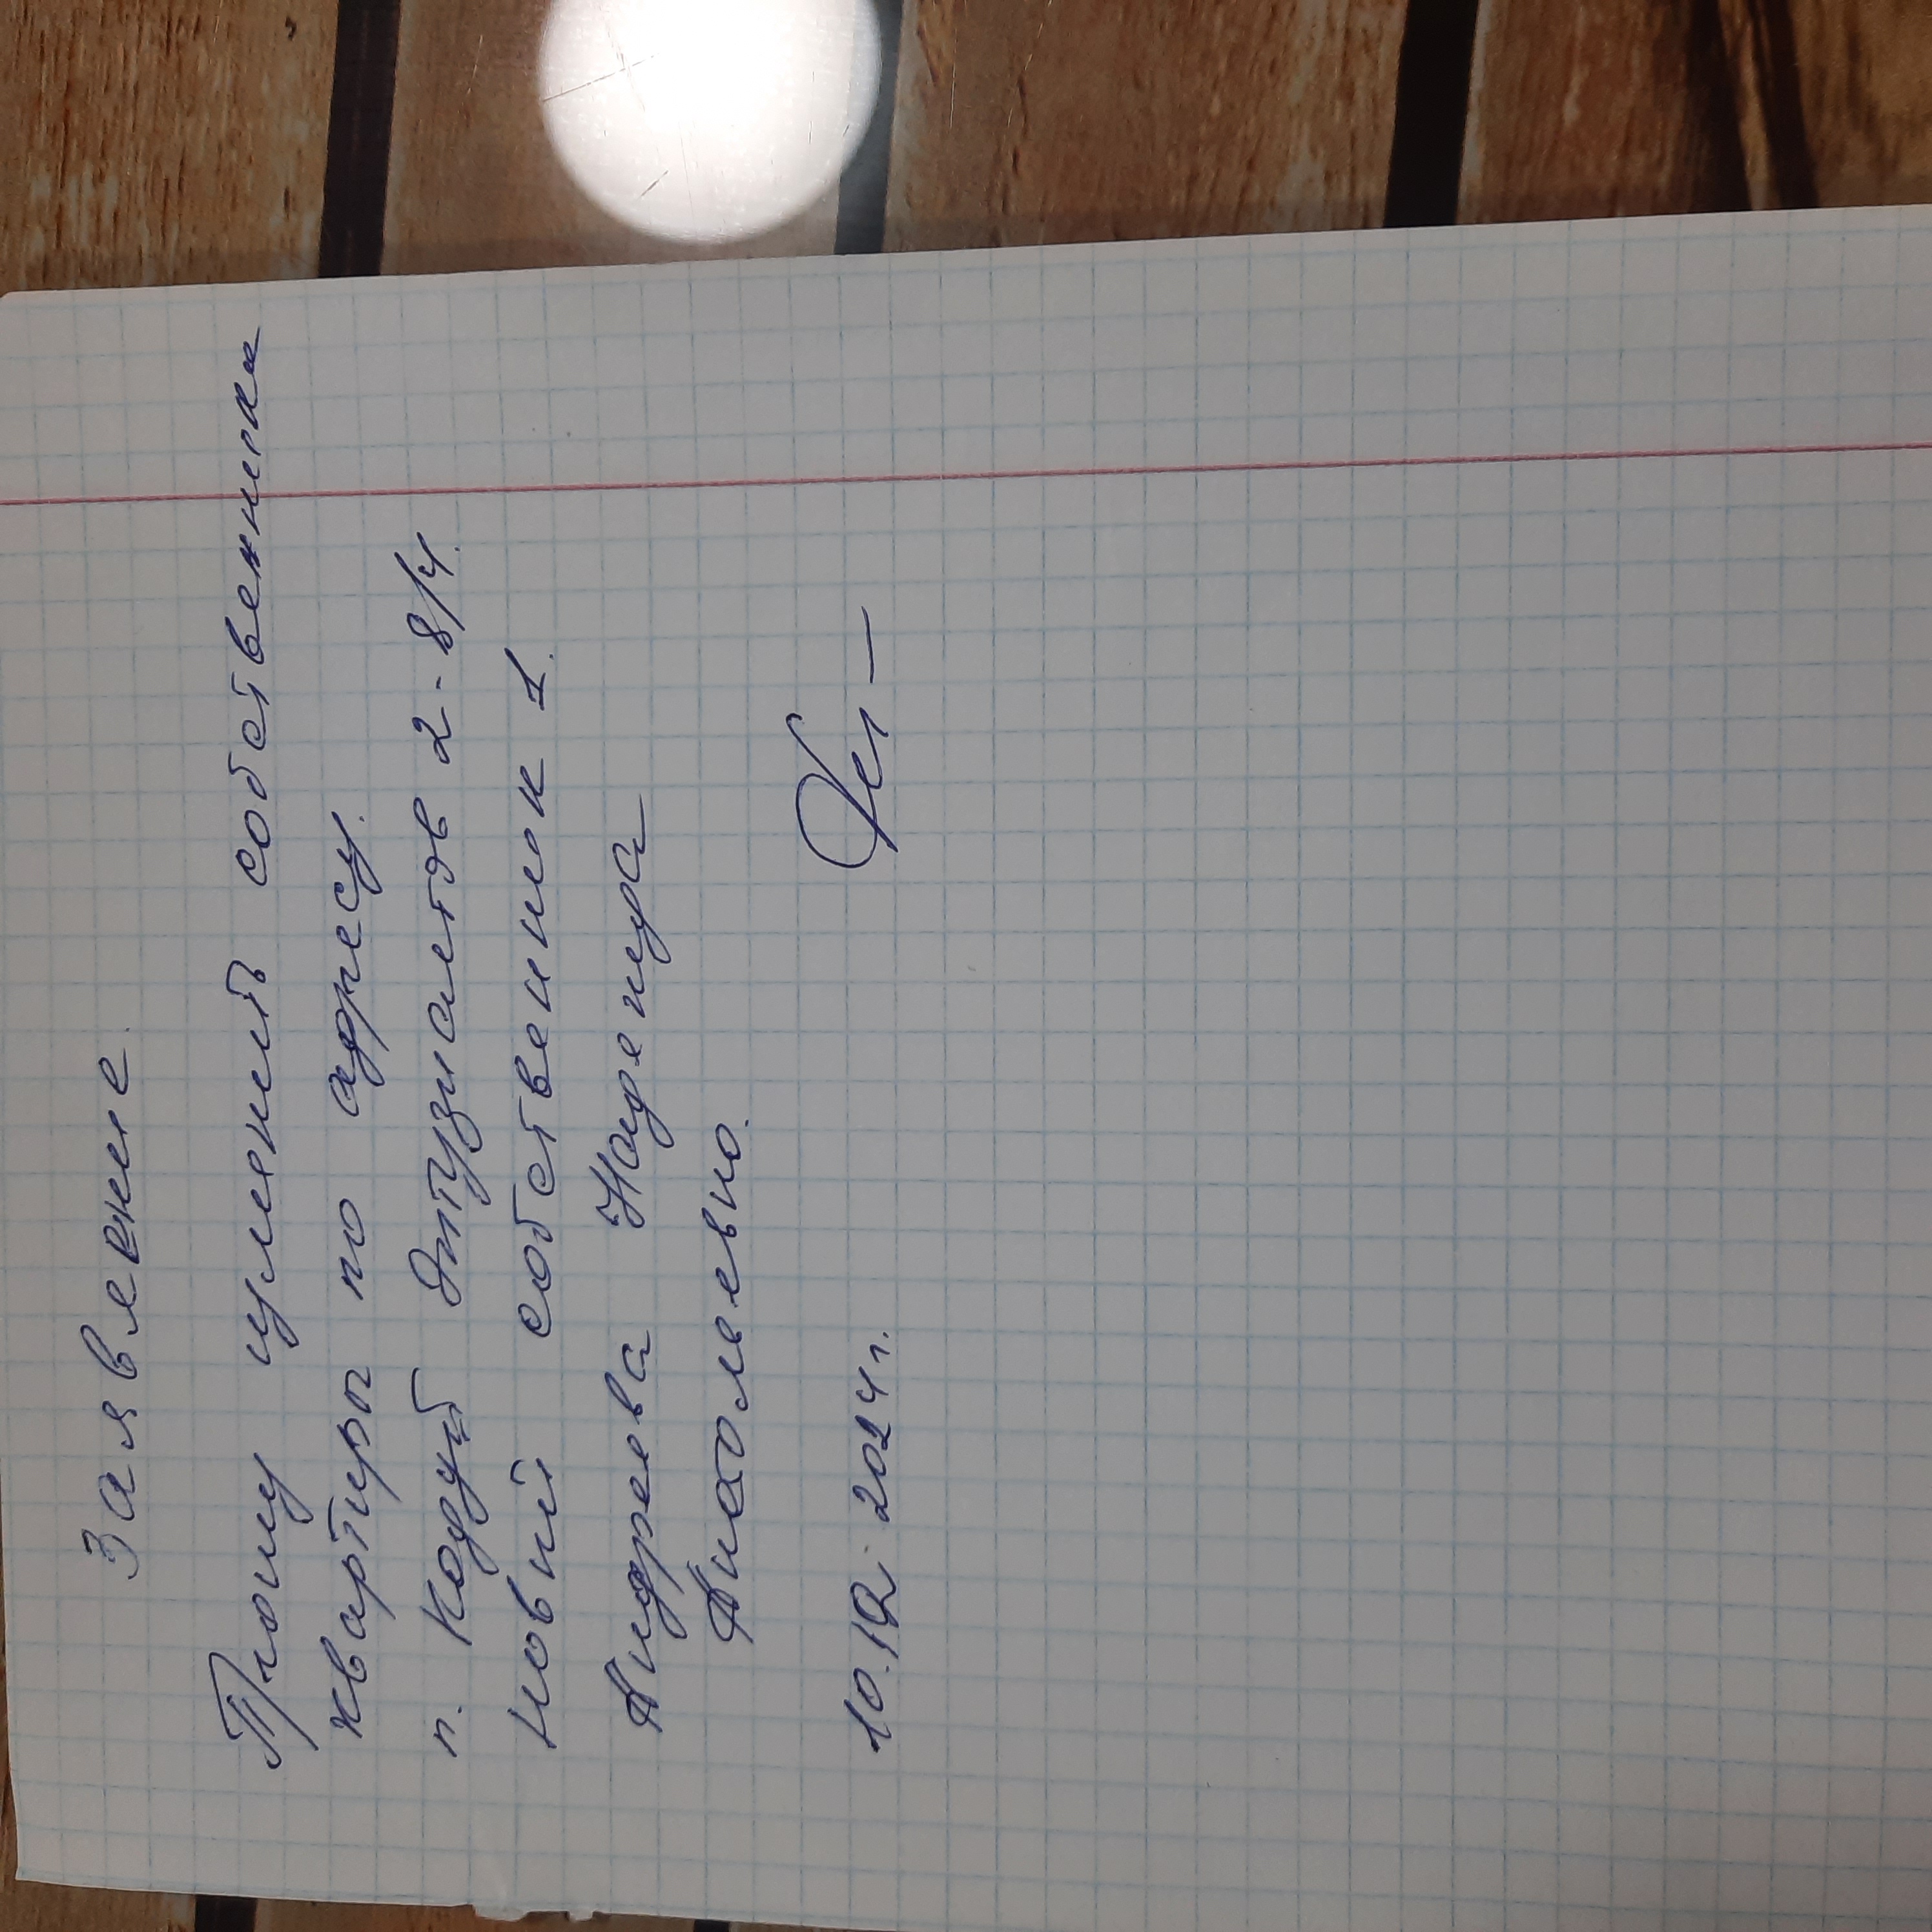 Заявление.
Прошу изменить собственника
квартиры по адресу.
п. Кадуй Энтузиастов 2-8/4.
Новый собственник 1.
Андреева Надежда
Анатольевна.
10.12.2024г.